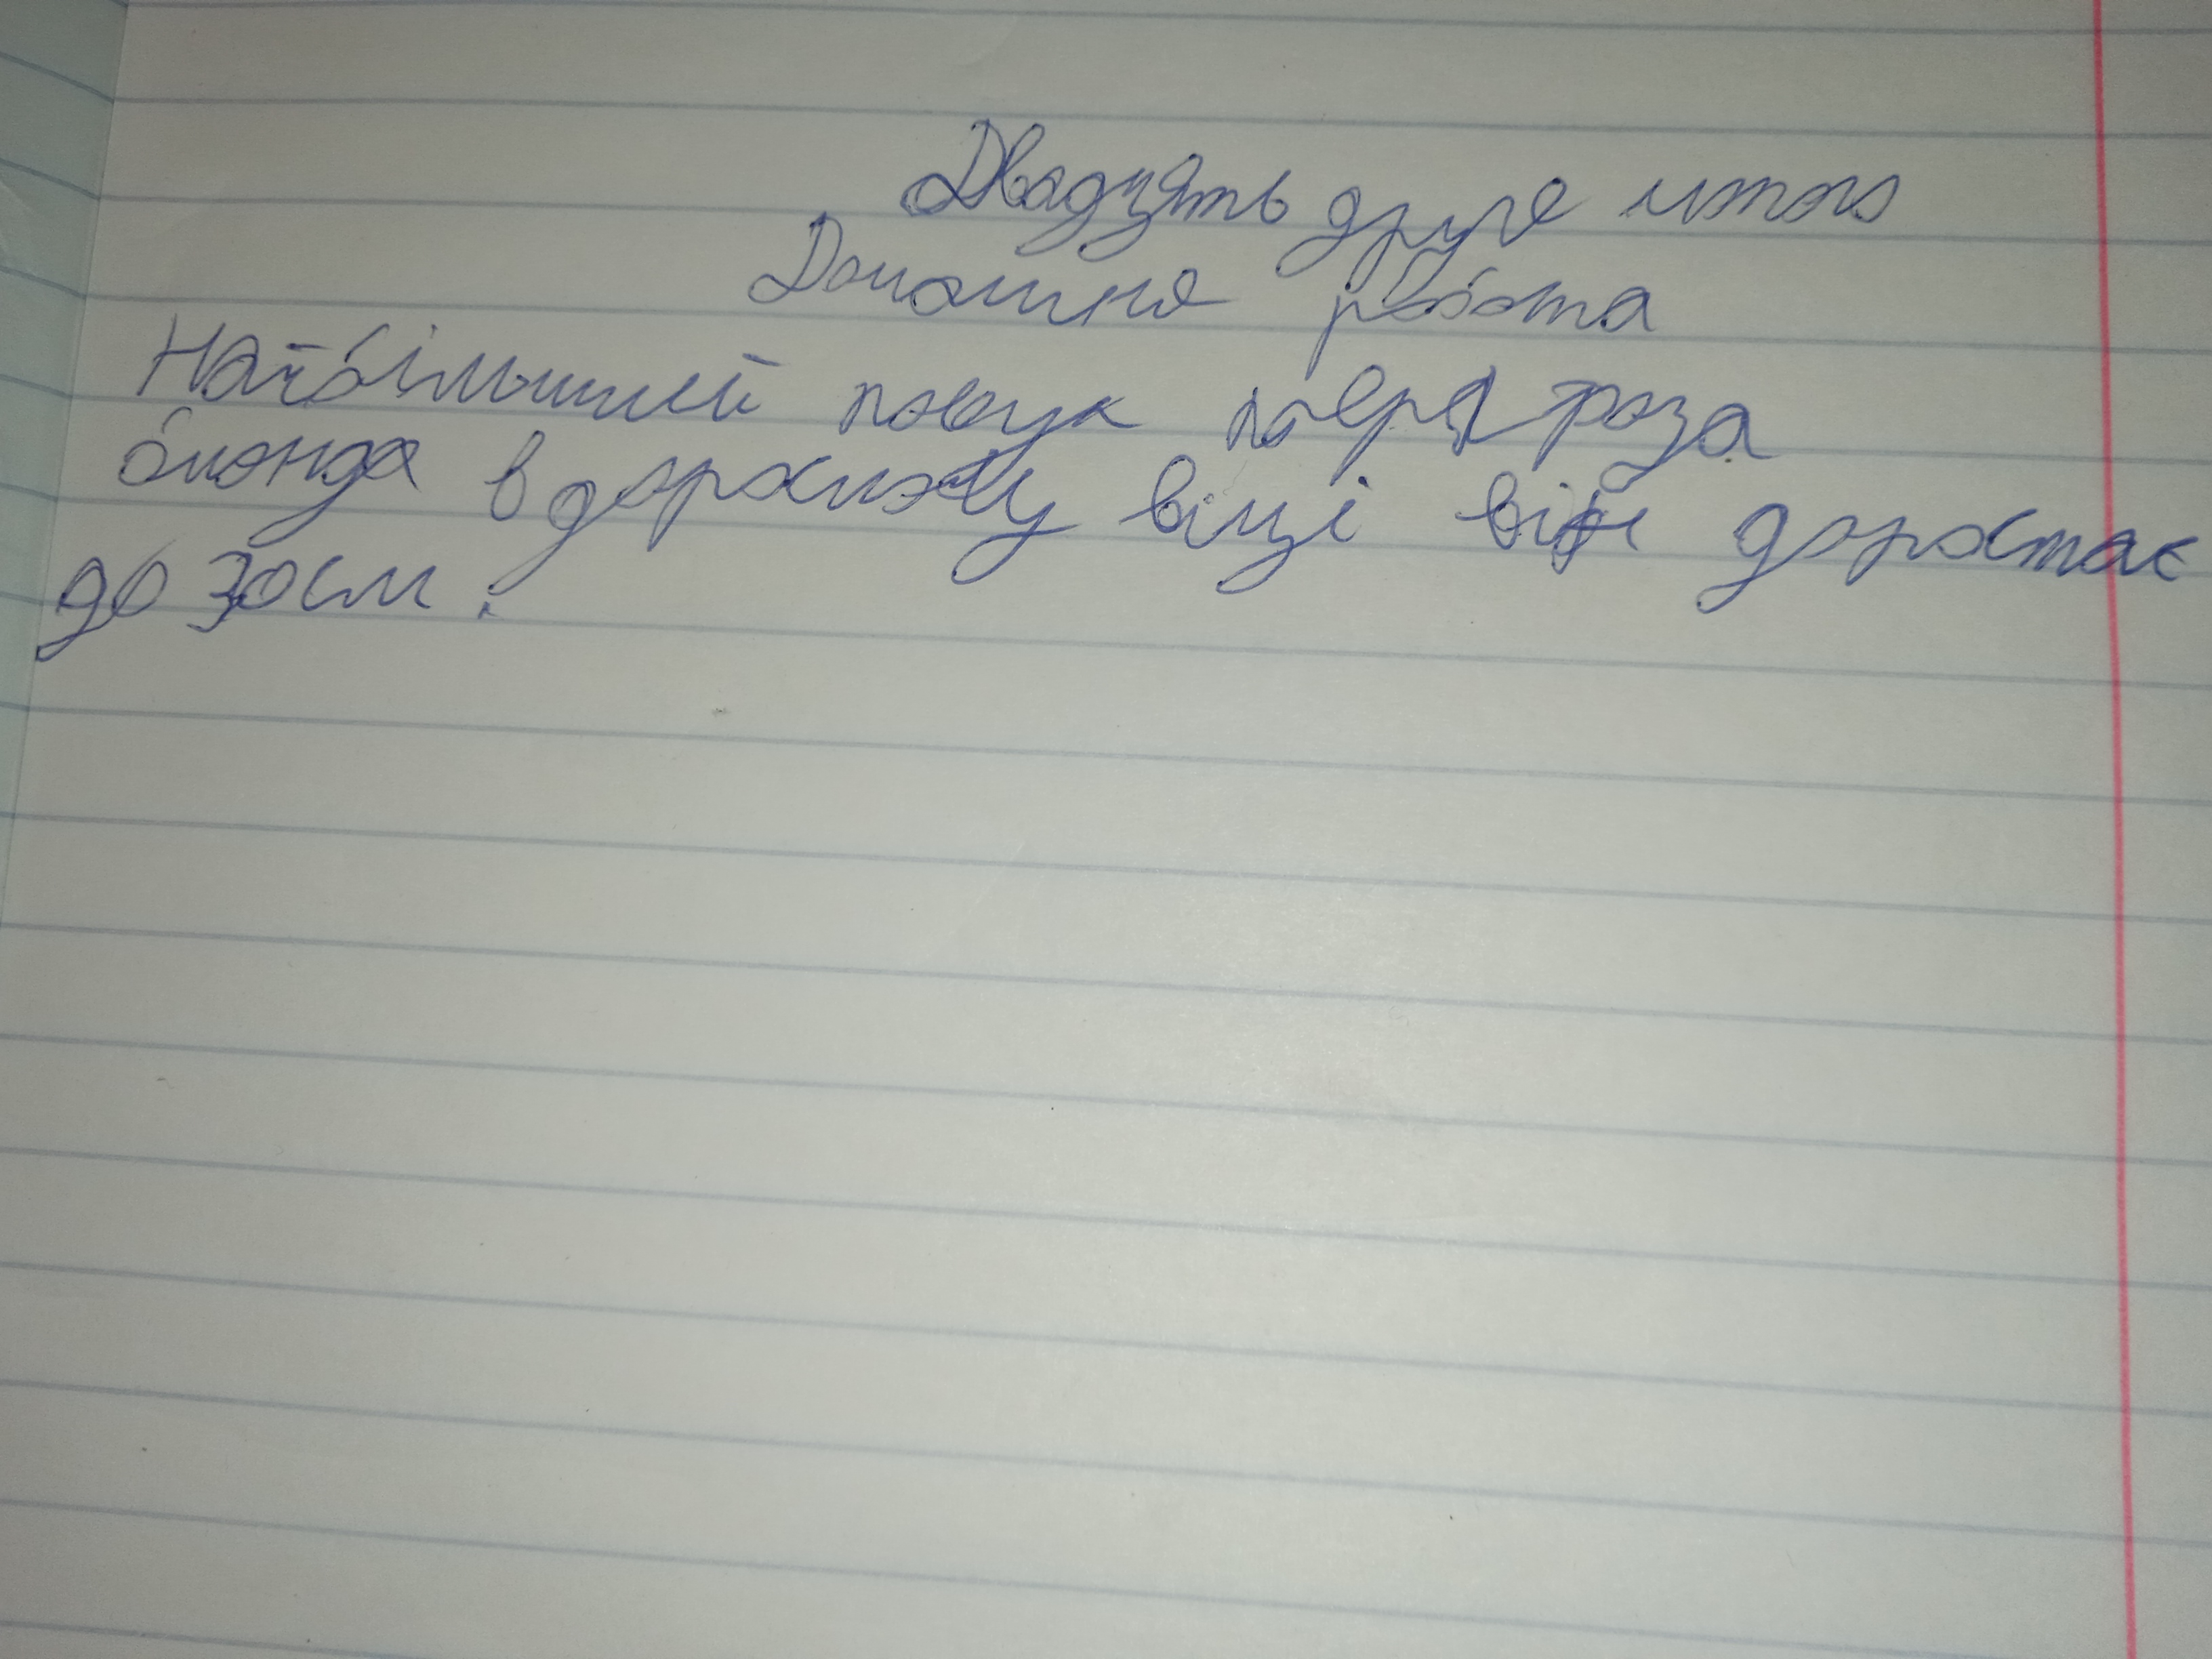 Двадцять друге лютого
Домашня робота
Найбільший павук птерафоза
блонда в дорослому віці він доростає
до 30см.